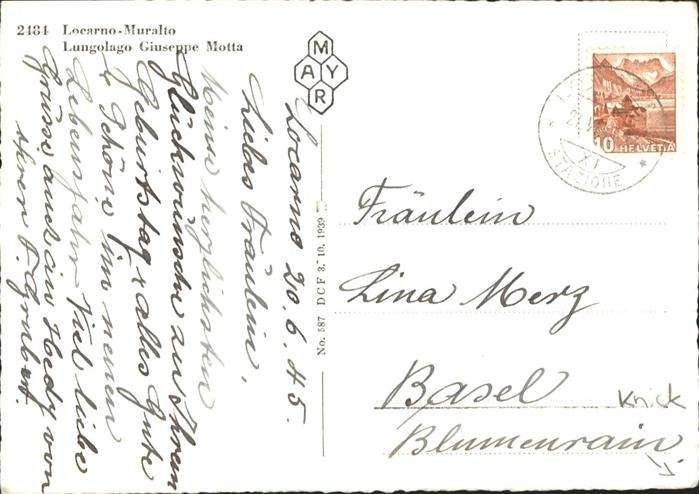 2484 Locarno-Muralto
Lungolago Giuseppe Motta
MAYR
Locarno 20.6.45.
Liebes Fräulein,
Meine herzlichsten
Glückwünsche zu Ihrem
Geburtstag & alles Gute
& Schöne im neuen
Lebensjahr. Viel liebe
Grüsse auch an Hedy von
Ihrem
No. 587 DCF 3. 10. 1939
10 HELVETIA
XI
STAZIONE
Fräulein
Lina Merz
Basel
Knick
Blumenrain